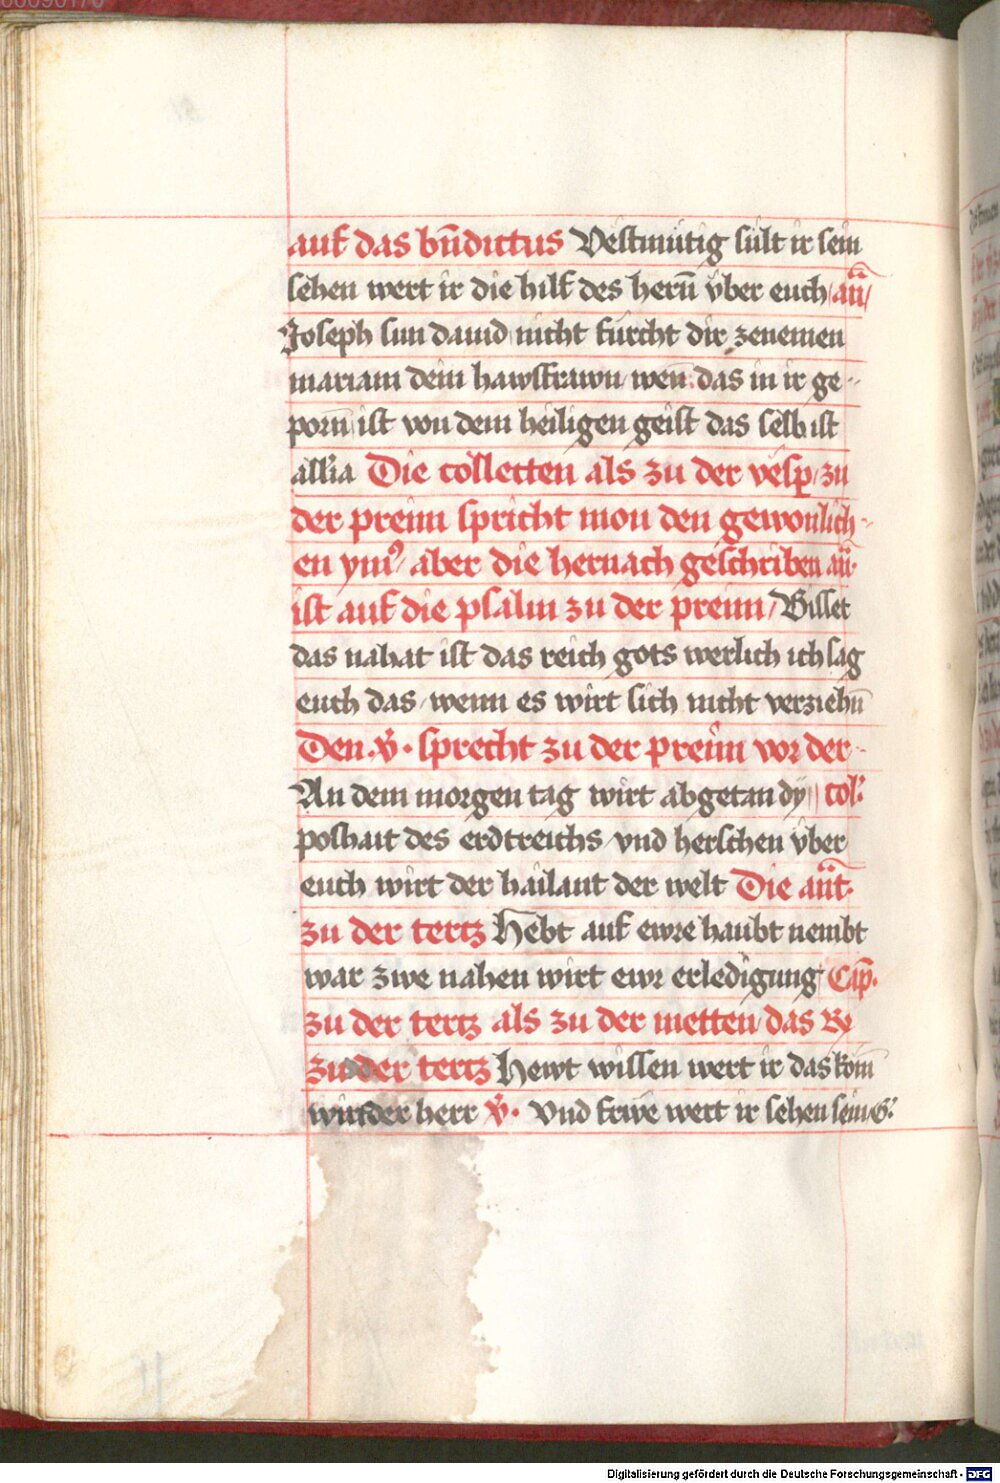 00090170
auf das bn̄dictus Vestmutig sült ir sein
sehen wert ir die hilf des herñ vber euch an̄
Joseph sun dauid nicht fürcht dir zenemen
mariam dein hawsfrawn wen das in ir ge-
porn̄ ist von dem heiligen geist das selb ist
all'ia Die collecten als zu der vesp zu
der preim spricht mon den gewonlich-
en ym̄⁹ aber die hernach geschriben an̄
ist auf die psalm zu der preim Wisset
das nahat ist das reich gots werlich ich sag
euch das wenn es wirt sich nicht verziehn̄
Den v̄ sprecht zu der preim vor der-
An dem morgen tag wirt abgetan dy col'
poshait des erdtreichs vnd herschen vber
euch wirt der hailant der welt Die ant̄
zu der tertz Hebt auf ewre haubt nembt
war zwe nahen wirt ewr erledigung Cap̄
zu der tertz als zu der metten das R
zu der tertz Hewt wissen wert ir das kōm
wirt der herr v̄ Vnd frwe wert ir sehen sein G'
Digitalisierung gefördert durch die Deutsche Forschungsgemeinschaft - DFG